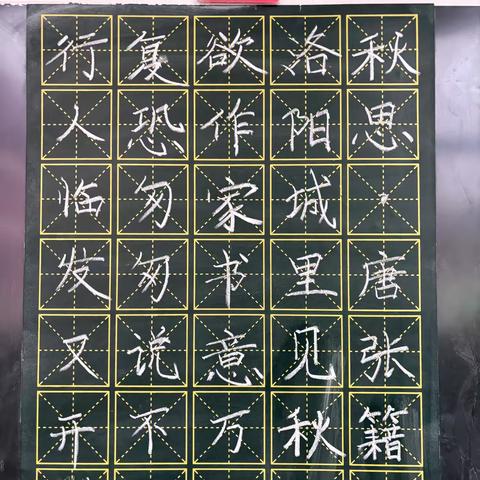 秋思·唐张籍
洛阳城里见秋
欲作家书意万
复恐匆匆说不
行人临发又开